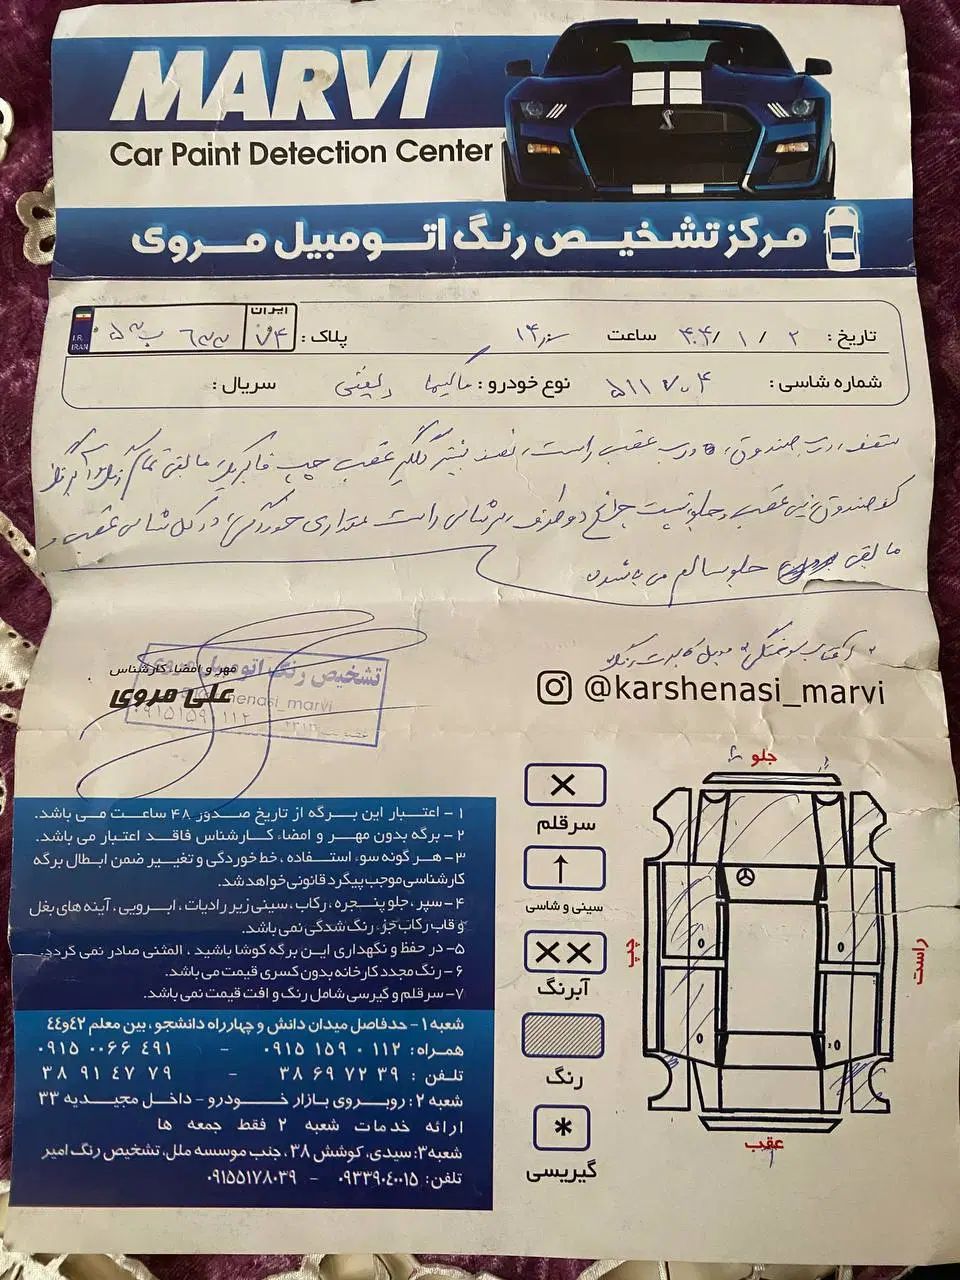 MARVI
Car Paint Detection Center
مرکز تشخیص رنگ اتومبیل مروی
تاریخ : ۲ / ۱ / ۴۰۴ ساعت ۱۴ پلاک :
ایران
۷۴
I.R.
IRAN
شماره شاسی : ۵۱۱۷۰۴ نوع خودرو : ماکسیما سریال :
سقف، درب صندوق، درب عقب راست، نصف بیشتر گلگیر عقب چپ فابریک، مابقی تمام
کف صندوق، سینی عقب و جلو چراغ دو طرف، سرشاسی راست مقداری خوردگی، عقب و
مابقی جلو سالم می باشد
آفتاب سوختگی
مهر و امضاء کارشناس
علی مروی
تشخیص رنگ اتومبیل مروی
@karshenasi_marvi
جلو
چپ
راست
عقب
×
سرقلم
↑
سینی و شاسی
××
آبرنگ
رنگ
*
گیریسی
۱- اعتبار این برگه از تاریخ صدور ۴۸ ساعت می باشد.
۲- برگه بدون مهر و امضاء کارشناس فاقد اعتبار می باشد.
۳- هرگونه سوء استفاده ، خط خوردگی و تغییر ضمن ابطال برگه
کارشناسی موجب پیگرد قانونی خواهد شد.
۴- سپر ، جلو پنجره ، رکاب ، سینی زیر رادیات ، ابرویی ، آینه های بغل
و قاب رکاب جزء رنگ شدگی نمی باشد.
۵- در حفظ و نگهداری این برگه کوشا باشید ، المثنی صادر نمی گردد.
۶- رنگ مجدد کارخانه بدون کسری قیمت می باشد.
۷- سرقلم و گیرسی شامل رنگ و افت قیمت نمی باشد.
شعبه ۱- حدفاصل میدان دانش و چهارراه دانشجو ، بین معلم ۴۲و۴۴
همراه: ۰۹۱۵ ۱۵۹ ۰ ۱۱۲ - ۰۹۱۵ ۰۰۶۶ ۴۹۱
تلفن : ۳۸ ۶۹ ۷۲ ۳۹ - ۳۸ ۹۱ ۴۷ ۷۹
شعبه ۲: روبروی بازار خودرو - داخل مجیدیه ۳۳
ارائه خدمات شعبه ۲ فقط جمعه ها
شعبه۳: سیدی، کوشش ۳۸، جنب موسسه ملل، تشخیص رنگ امیر
تلفن: ۰۹۳۳۹۰۴۰۰۱۵ - ۰۹۱۵۵۱۷۸۰۳۹